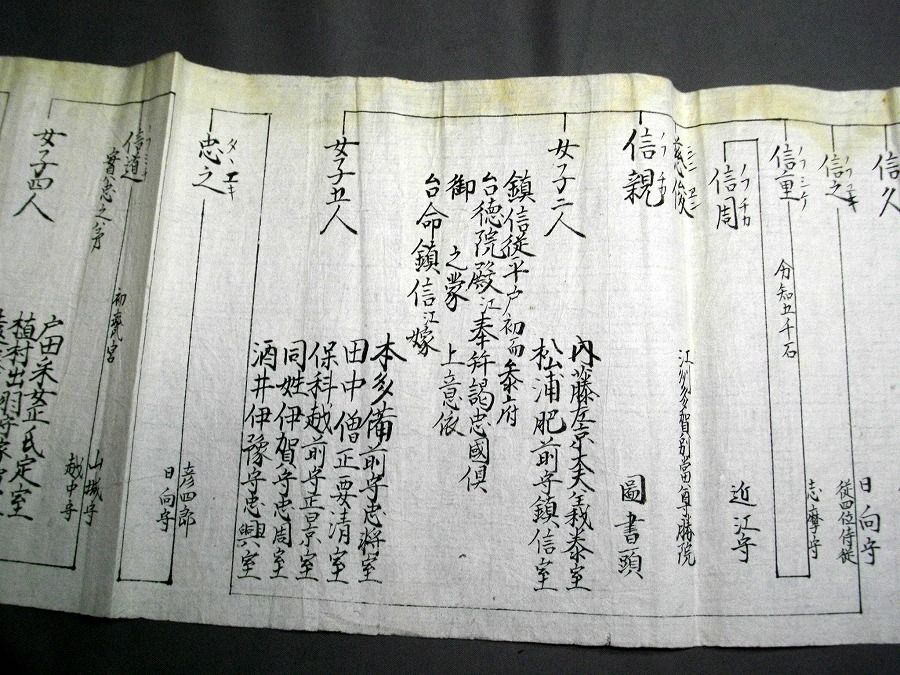 信久
信之
ノブユキ
日向守
従四位侍従
信重
ノブシゲ
分知五千石
志摩守
信周
ノブチカ
近江守
慈俊
江州多賀別當尊勝院
信親
ノブチカ
圖書頭
女子二人
内藤左京大夫義泰室
松浦肥前守鎮信室
鎮信従平户初而参府
台徳院殿江奉拜謁忠國倶
御之蒙上意依
台命鎮信江嫁
女子五人
本多備前守忠将室
田中僧正要清室
保科越前守正景室
同姓伊賀守忠周室
酒井伊豫守忠興室
忠之
タヾユキ
彦四郎
日向守
信道
實忠之弟
山城守
越中守
女子四人
戸田采女正氏定室
植村出羽守家